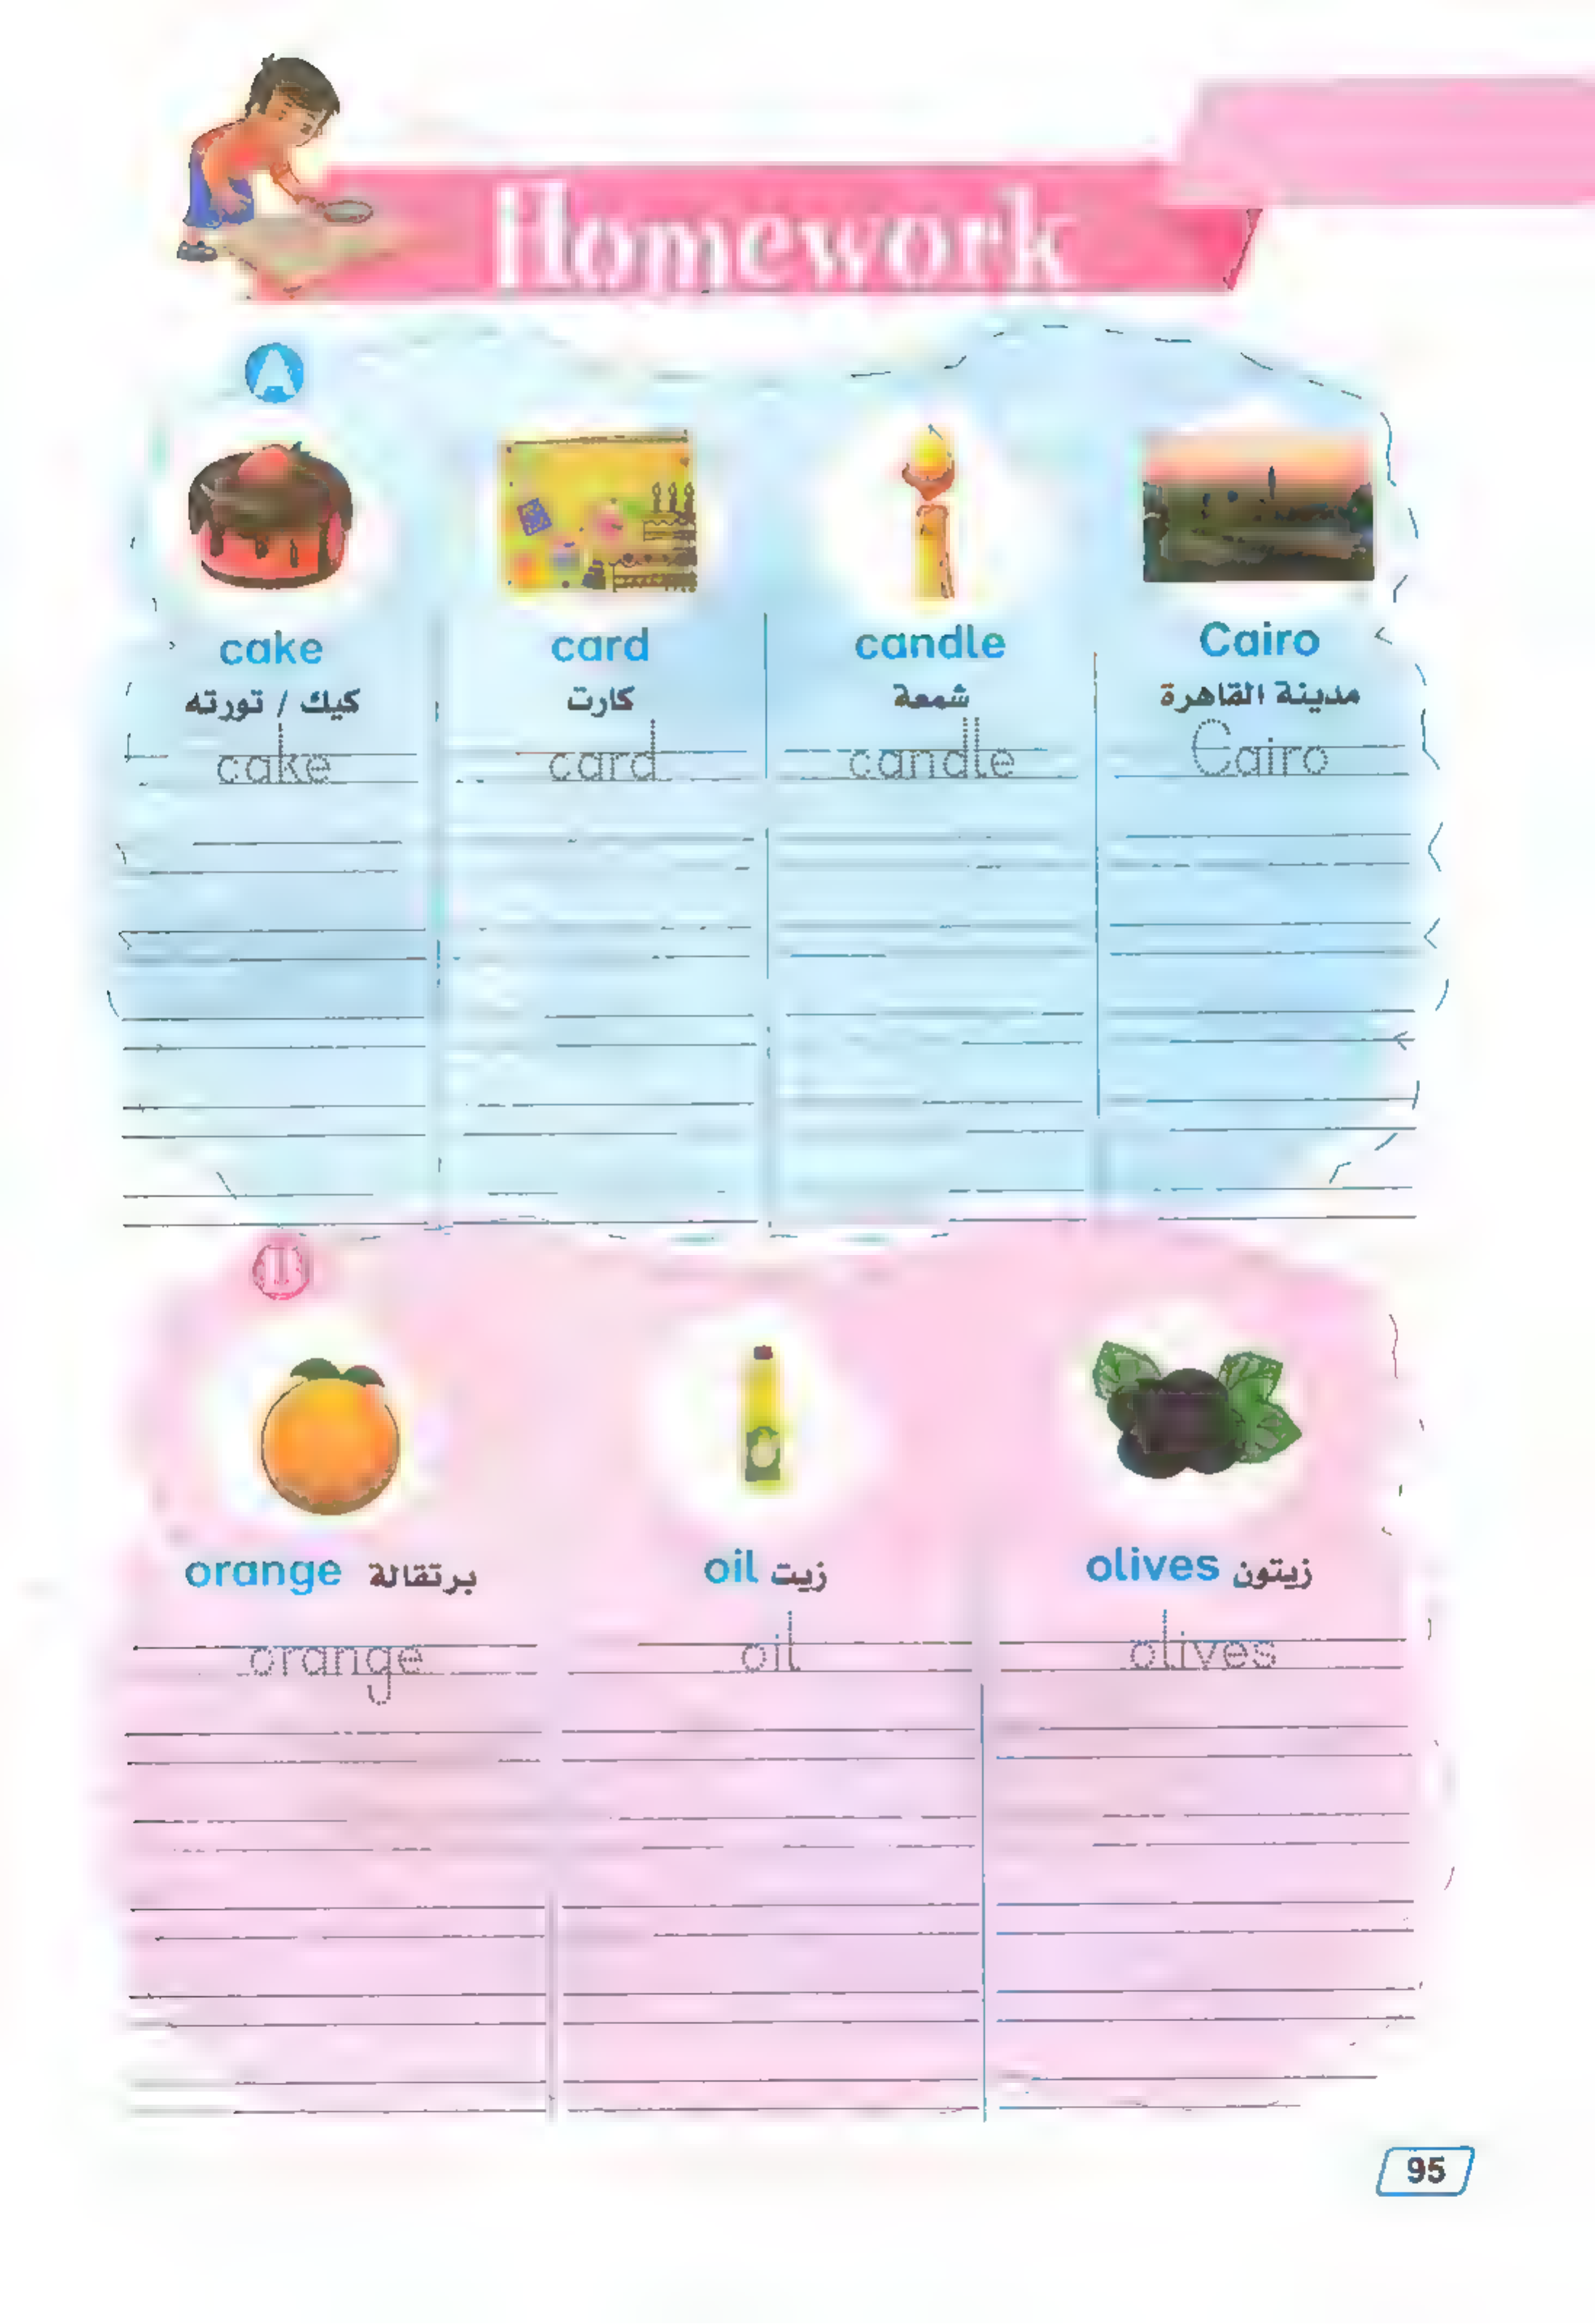 Homework
A
cake card candle Cairo
كيك / تورته كارت شمعة مدينة القاهرة
cake card candle Cairo
orange برتقالة oil زيت olives زيتون
orange oil olives
95